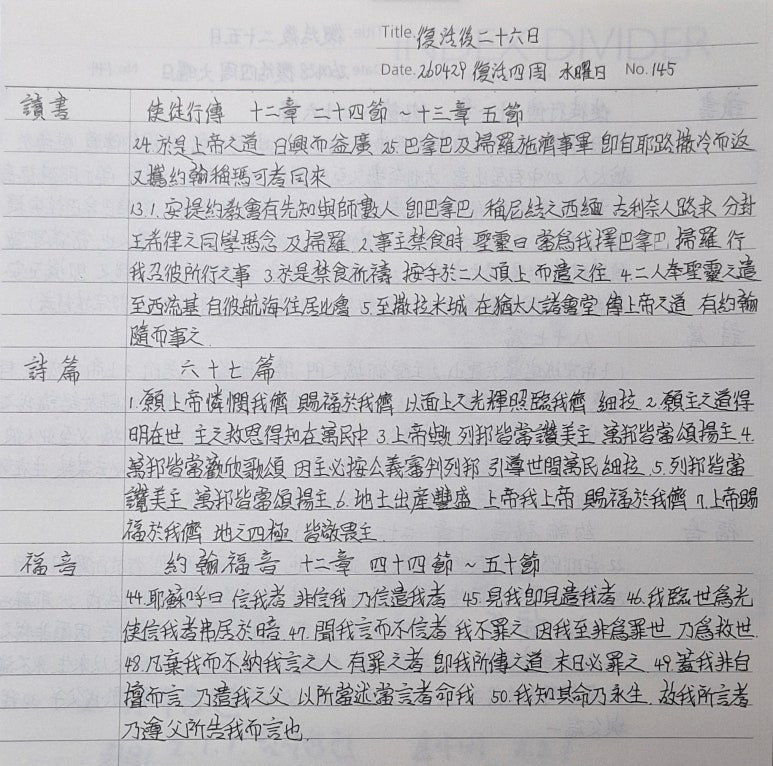 Title. 復活後二十六日
Date. 260429 復活四周 水曜日 No. 145
讀書 使徒行傳 十二章 二十四節 ~ 十三章 五節
24. 於是上帝之道 日興而益廣 25. 巴拿巴及掃羅施濟事畢 卽自耶路撒冷而返
又攜約翰稱瑪可者同來
13.1. 安提約敎會有先知與師數人 卽巴拿巴 稱尼結之西緬 古利奈人路求 分封
王希律之同學瑪念 及掃羅 2. 事主禁食時 聖靈曰 當爲我擇巴拿巴 掃羅 行
我召彼所行之事 3. 於是禁食祈禱 按手於二人頂上 而遣之往 4. 二人奉聖靈之遣
至西流基 自彼航海往居比魯 5. 至撒拉米城 在猶太人諸會堂 傳上帝之道 有約翰
隨而事之
詩篇 六十七篇
1. 願上帝憐憫我儕 賜福於我儕 以面上之光輝照臨我儕 細拉 2. 願主之道得
明在世 主之救恩得知在萬民中 3. 上帝歟 列邦皆當讚美主 萬邦皆當頌揚主 4.
萬邦皆當歡欣歌頌 因主必按公義審判列邦 引導世間萬民 細拉 5. 列邦皆當
讚美主 萬邦皆當頌揚主 6. 地土出產豐盛 上帝我上帝 賜福於我儕 7. 上帝賜
福於我儕 地之四極 皆敬畏主
福音 約翰福音 十二章 四十四節 ~ 五十節
44. 耶穌呼曰 信我者 非信我 乃信遣我者 45. 見我卽見遣我者 46. 我臨世爲光
使信我者弗居於暗 47. 聞我言而不信者 我不罪之 因我至非爲罪世 乃爲救世
48. 凡棄我而不納我言之人 有罪之者 卽我所傳之道 末日必罪之 49. 蓋我非自
擅而言 乃遣我之父 以所當述當言者命我 50. 我知其命乃永生 故我所言者
乃遵父所告我而言也